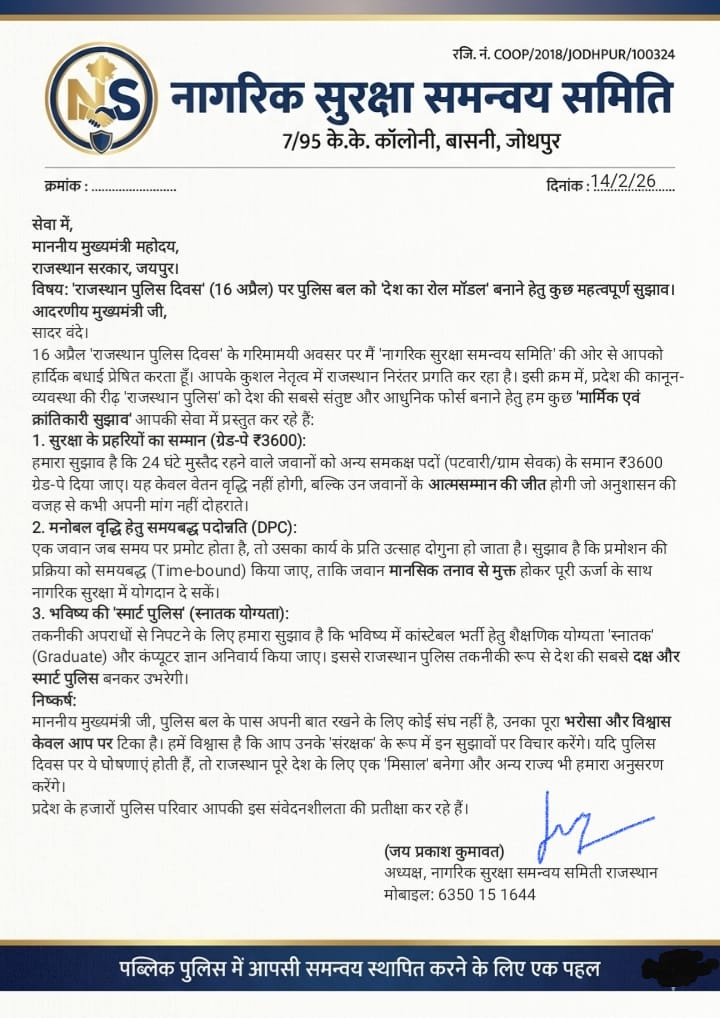 रजि. नं. COOP/2018/JODHPUR/100324
NS
नागरिक सुरक्षा समन्वय समिति
7/95 के.के. कॉलोनी, बासनी, जोधपुर
क्रमांक : ......................... दिनांक : 14/2/26
सेवा में,
माननीय मुख्यमंत्री महोदय,
राजस्थान सरकार, जयपुर।
विषय: 'राजस्थान पुलिस दिवस' (16 अप्रैल) पर पुलिस बल को 'देश का रोल मॉडल' बनाने हेतु कुछ महत्वपूर्ण सुझाव।
आदरणीय मुख्यमंत्री जी,
सादर वंदे।
16 अप्रैल 'राजस्थान पुलिस दिवस' के गरिमामयी अवसर पर मैं 'नागरिक सुरक्षा समन्वय समिति' की ओर से आपको
हार्दिक बधाई प्रेषित करता हूँ। आपके कुशल नेतृत्व में राजस्थान निरंतर प्रगति कर रहा है। इसी क्रम में, प्रदेश की कानून-
व्यवस्था की रीढ़ 'राजस्थान पुलिस' को देश की सबसे संतुष्ट और आधुनिक फोर्स बनाने हेतु हम कुछ 'मार्मिक एवं
क्रांतिकारी सुझाव' आपकी सेवा में प्रस्तुत कर रहे हैं:
1. सुरक्षा के प्रहरियों का सम्मान (ग्रेड-पे ₹3600):
हमारा सुझाव है कि 24 घंटे मुस्तैद रहने वाले जवानों को अन्य समकक्ष पदों (पटवारी/ग्राम सेवक) के समान ₹3600
ग्रेड-पे दिया जाए। यह केवल वेतन वृद्धि नहीं होगी, बल्कि उन जवानों के आत्मसम्मान की जीत होगी जो अनुशासन की
वजह से कभी अपनी मांग नहीं दोहराते।
2. मनोबल वृद्धि हेतु समयबद्ध पदोन्नति (DPC):
एक जवान जब समय पर प्रमोट होता है, तो उसका कार्य के प्रति उत्साह दोगुना हो जाता है। सुझाव है कि प्रमोशन की
प्रक्रिया को समयबद्ध (Time-bound) किया जाए, ताकि जवान मानसिक तनाव से मुक्त होकर पूरी ऊर्जा के साथ
नागरिक सुरक्षा में योगदान दे सकें।
3. भविष्य की 'स्मार्ट पुलिस' (स्नातक योग्यता):
तकनीकी अपराधों से निपटने के लिए हमारा सुझाव है कि भविष्य में कांस्टेबल भर्ती हेतु शैक्षणिक योग्यता 'स्नातक'
(Graduate) और कंप्यूटर ज्ञान अनिवार्य किया जाए। इससे राजस्थान पुलिस तकनीकी रूप से देश की सबसे दक्ष और
स्मार्ट पुलिस बनकर उभरेगी।
निष्कर्ष:
माननीय मुख्यमंत्री जी, पुलिस बल के पास अपनी बात रखने के लिए कोई संघ नहीं है, उनका पूरा भरोसा और विश्वास
केवल आप पर टिका है। हमें विश्वास है कि आप उनके 'संरक्षक' के रूप में इन सुझावों पर विचार करेंगे। यदि पुलिस
दिवस पर ये घोषणाएं होती हैं, तो राजस्थान पूरे देश के लिए एक 'मिसाल' बनेगा और अन्य राज्य भी हमारा अनुसरण
करेंगे।
प्रदेश के हजारों पुलिस परिवार आपकी इस संवेदनशीलता की प्रतीक्षा कर रहे हैं।
(जय प्रकाश कुमावत)
अध्यक्ष, नागरिक सुरक्षा समन्वय समिती राजस्थान
मोबाइल: 6350 15 1644
पब्लिक पुलिस में आपसी समन्वय स्थापित करने के लिए एक पहल